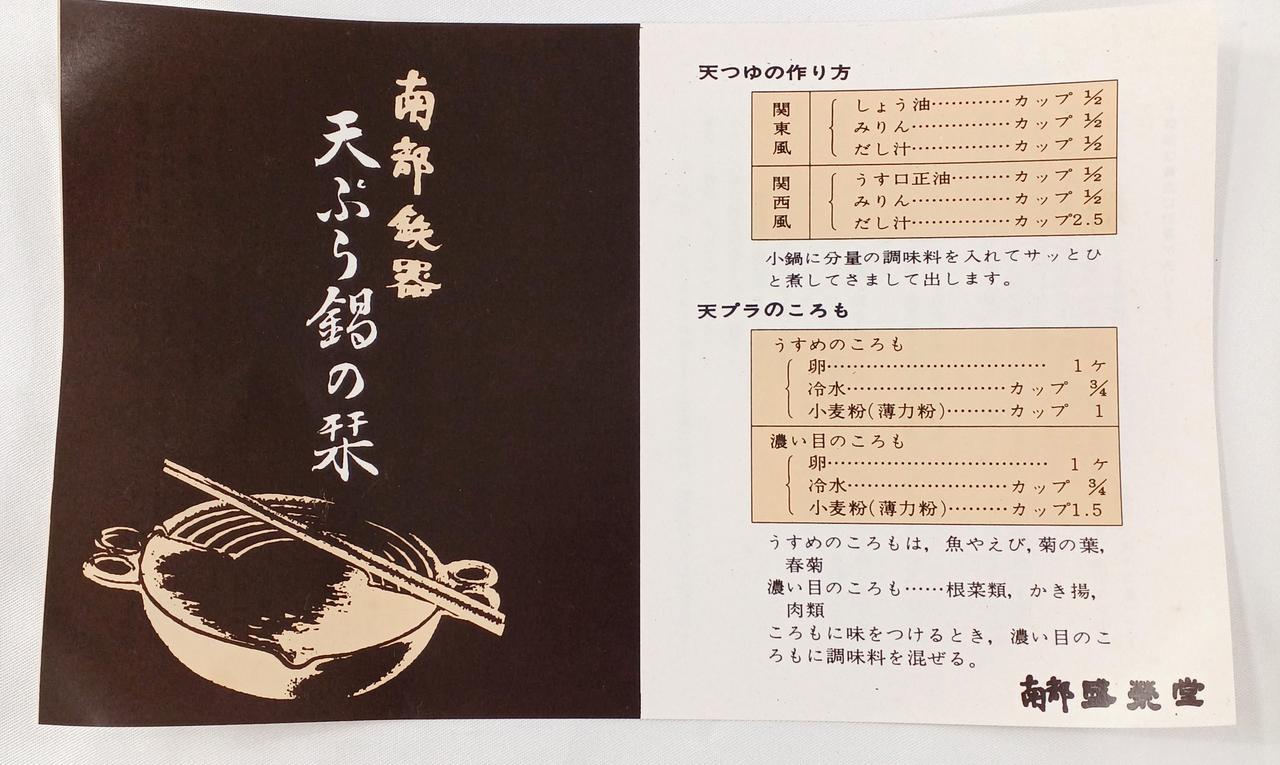 南部鉄器
天ぷら鍋の栞
天つゆの作り方
関東風
しょう油…………カップ ½
みりん……………カップ ½
だし汁……………カップ ½
関西風
うす口正油………カップ ½
みりん……………カップ ½
だし汁……………カップ2.5
小鍋に分量の調味料を入れてサッとひ
と煮してさまして出します。
天プラのころも
うすめのころも
卵…………………………… 1 ケ
冷水……………………カップ ¾
小麦粉(薄力粉)………カップ 1
濃い目のころも
卵…………………………… 1 ケ
冷水……………………カップ ¾
小麦粉(薄力粉)………カップ1.5
うすめのころもは,魚やえび,菊の葉,
春菊
濃い目のころも……根菜類,かき揚,
肉類
ころもに味をつけるとき,濃い目のこ
ろもに調味料を混ぜる。
南部盛栄堂